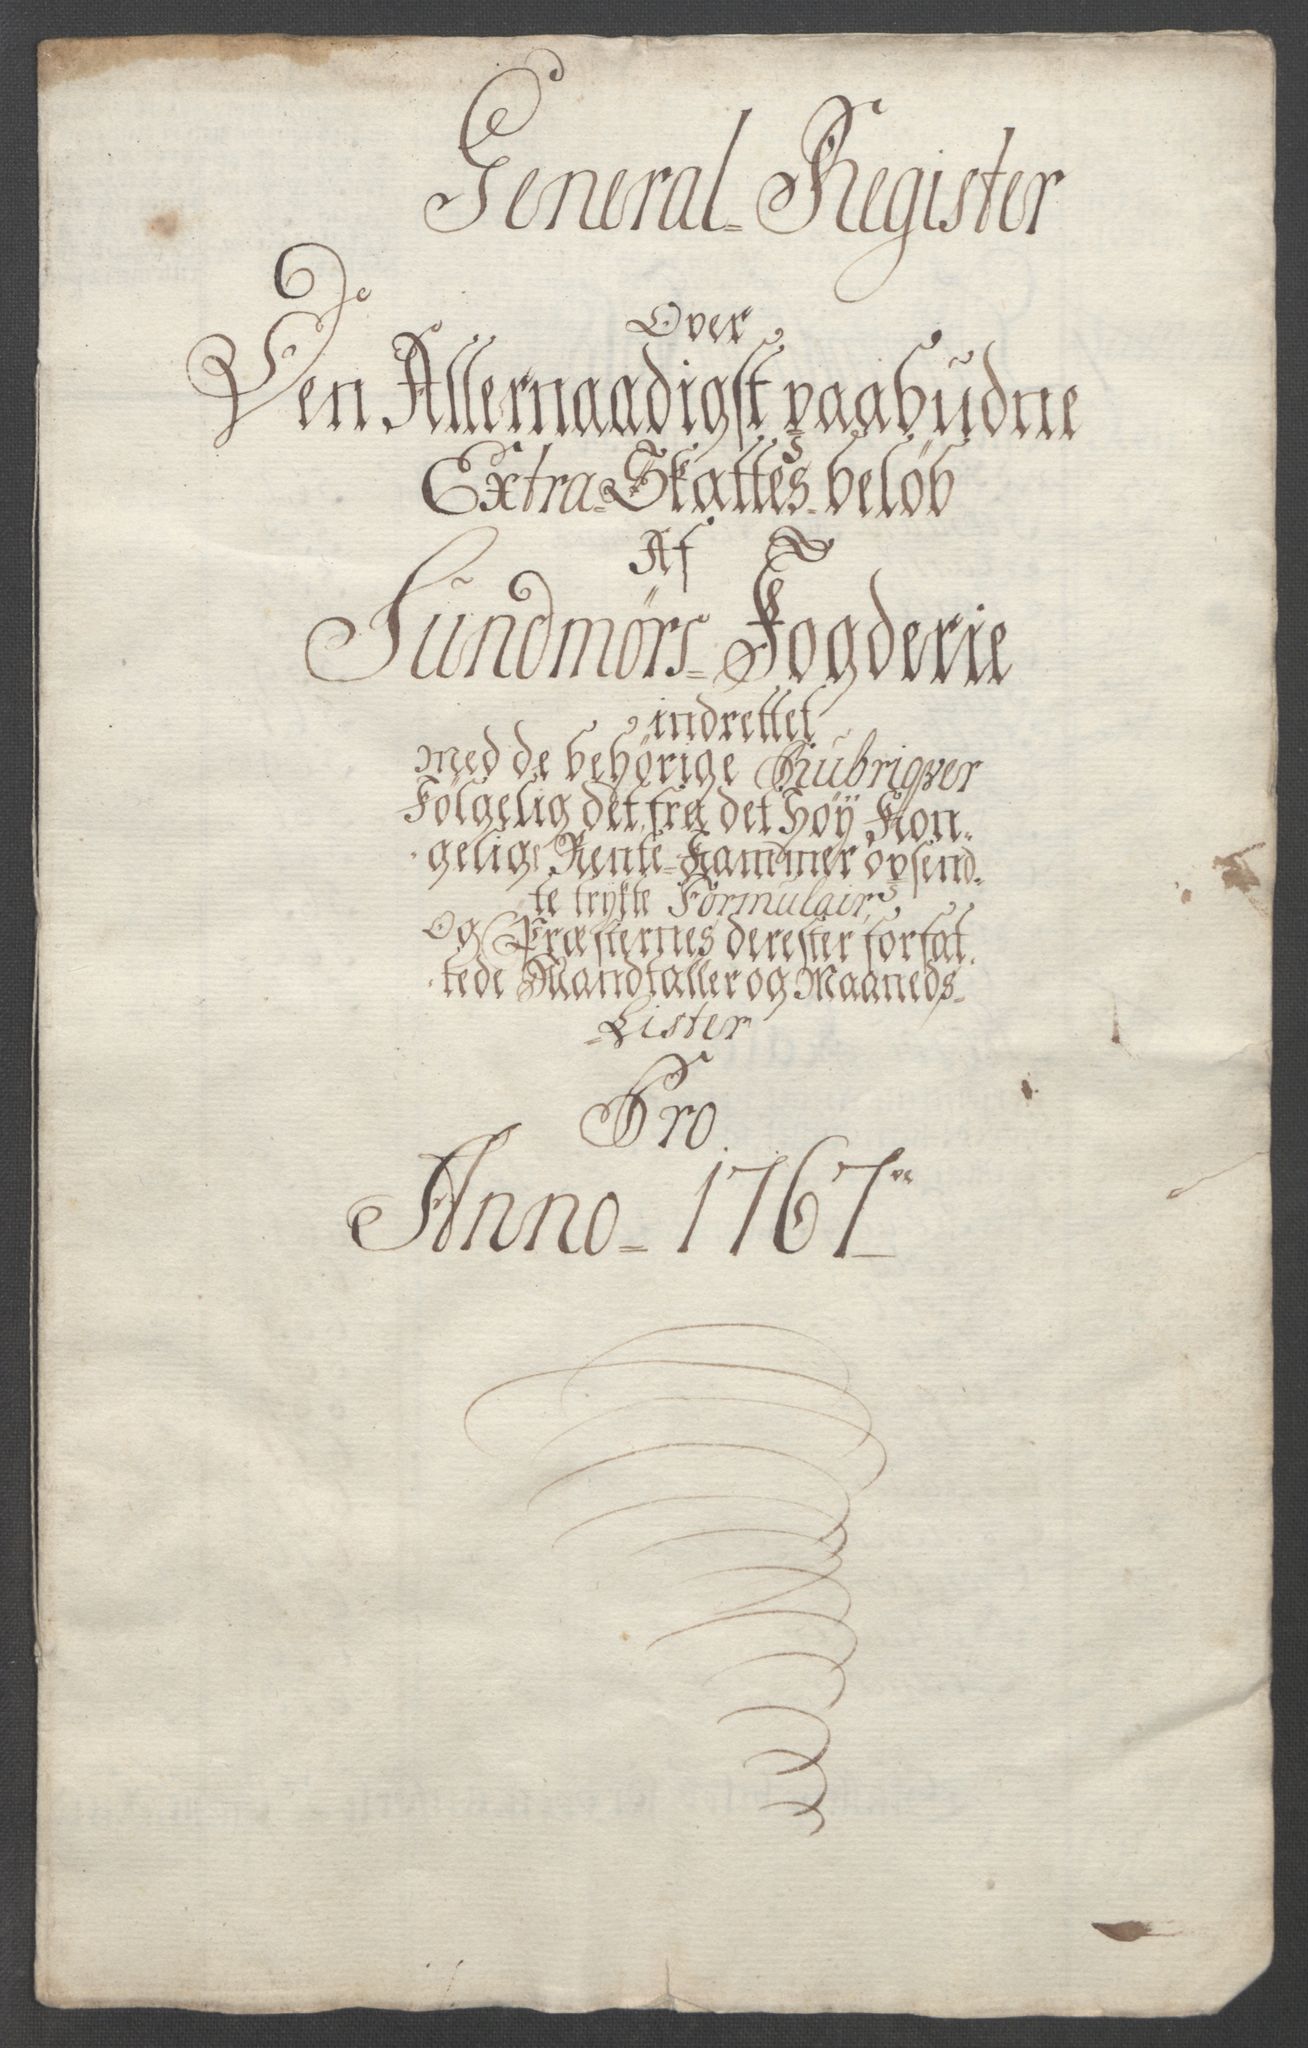 General- Register
Over
Den Allernaadigst paabudne
Extra-Skattes-beløb
Af
Sundmørs- Fogderie
indrettet
Med de behørige Rubriqver
Følgelig det fra det Høÿ Kon-
gelige Rente-Kammer opsend-
te trykte Formulair,
Og Præsternes derefter forfat-
tede Mandtaller og Maaneds-
-Lister
Pro
Anno- 1767-